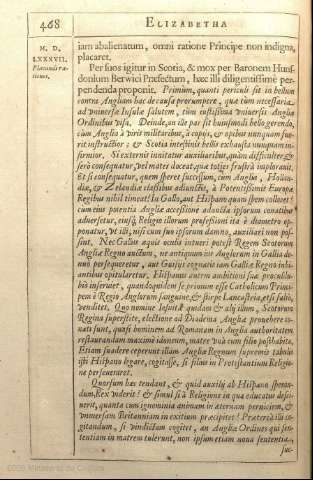 468 ELIZABETHA
M. D.
LXXXVII.
Placandi rationes.
iam abalienatum, omni ratione Principe non indigna,
placaret.
Per suos igitur in Scotia, & mox per Baronem Hunsdonium
Berwici Præfectum, hæc illi diligentissimè perpendenda
proponit. Primùm, quanti periculi sit in bellum
contra Angliam hac de causa prorumpere, quæ tùm necessaria
ad vniuersæ Insulæ salutem, tùm iustissima vniuersis Angliæ
Ordinibus visa. Deinde, an ille par sit huiusmodi bello gerendo,
cùm Anglia à viris militaribus, à copijs, & opibus nunquam fuerit
instructior; & Scotia intestinis bellis exhausta nunquam infirmior.
Si externis innitatur auxiliaribus, quàm difficulter, &
serò consequatur, vel mater doceat, quæ toties frustrà implorauit.
Et si consequatur, quem speret successum, cùm Anglia, Hollandiæ,
& Zelandiæ classibus adiunctis, à Potentissimis Europæ
Regibus nihil timeat? In Gallo, aut Hispano quam spem collocet?
cùm eius potentia Angliæ accessione adaucta ipsorum conatibus
aduersetur, eiusq; Religio illorum professioni ita è diametro opponatur,
vt illi, nisi cum suo ipsorum damno, auxiliari non possint.
Nec Gallus æquis oculis intueri potest Regem Scotorum
Angliæ Regno auctum, ne antiquum ius Anglorum in Gallia denuò
persequeretur, aut Guisijs cognatis iam Galliæ Regno inhiantibus
opitularetur. Hispanus autem ambitioni suæ proculdubiò
inseruiet, quandoquidem se primum esse Catholicum Principem
è Regio Anglorum sanguine, & stirpe Lancastria, etsi falsò,
venditet. Quo nomine Iesuitæ quidam & alij illum, Scotorum
Regina superstite, electione ad Diadema Angliæ prouehere conati
sunt, quasi hominem ad Romanam in Anglia authoritatem
restaurandam maximè idoneum, matre vnà cum filio posthabita.
Etiam suadere ceperunt illam Angliæ Regnum supremis tabulis
isti Hispano legare, cogitasse, si filius in Protestantium Religione
perseueraret.
Quorsum hæc tendant, & quid auxilij ab Hispano sperandum,
Rex viderit! & simul si à Religione in qua educatus desciuerit,
quanta cum ignominia animam in æternam perniciem, &
vniuersam Britanniam in exitium præcipitet! Præterea illi cogitandum,
si vindictam cogitet, an Angliæ Ordines qui sententiam
in matrem tulerunt, non ipsum etiam noua sententia,
suc-